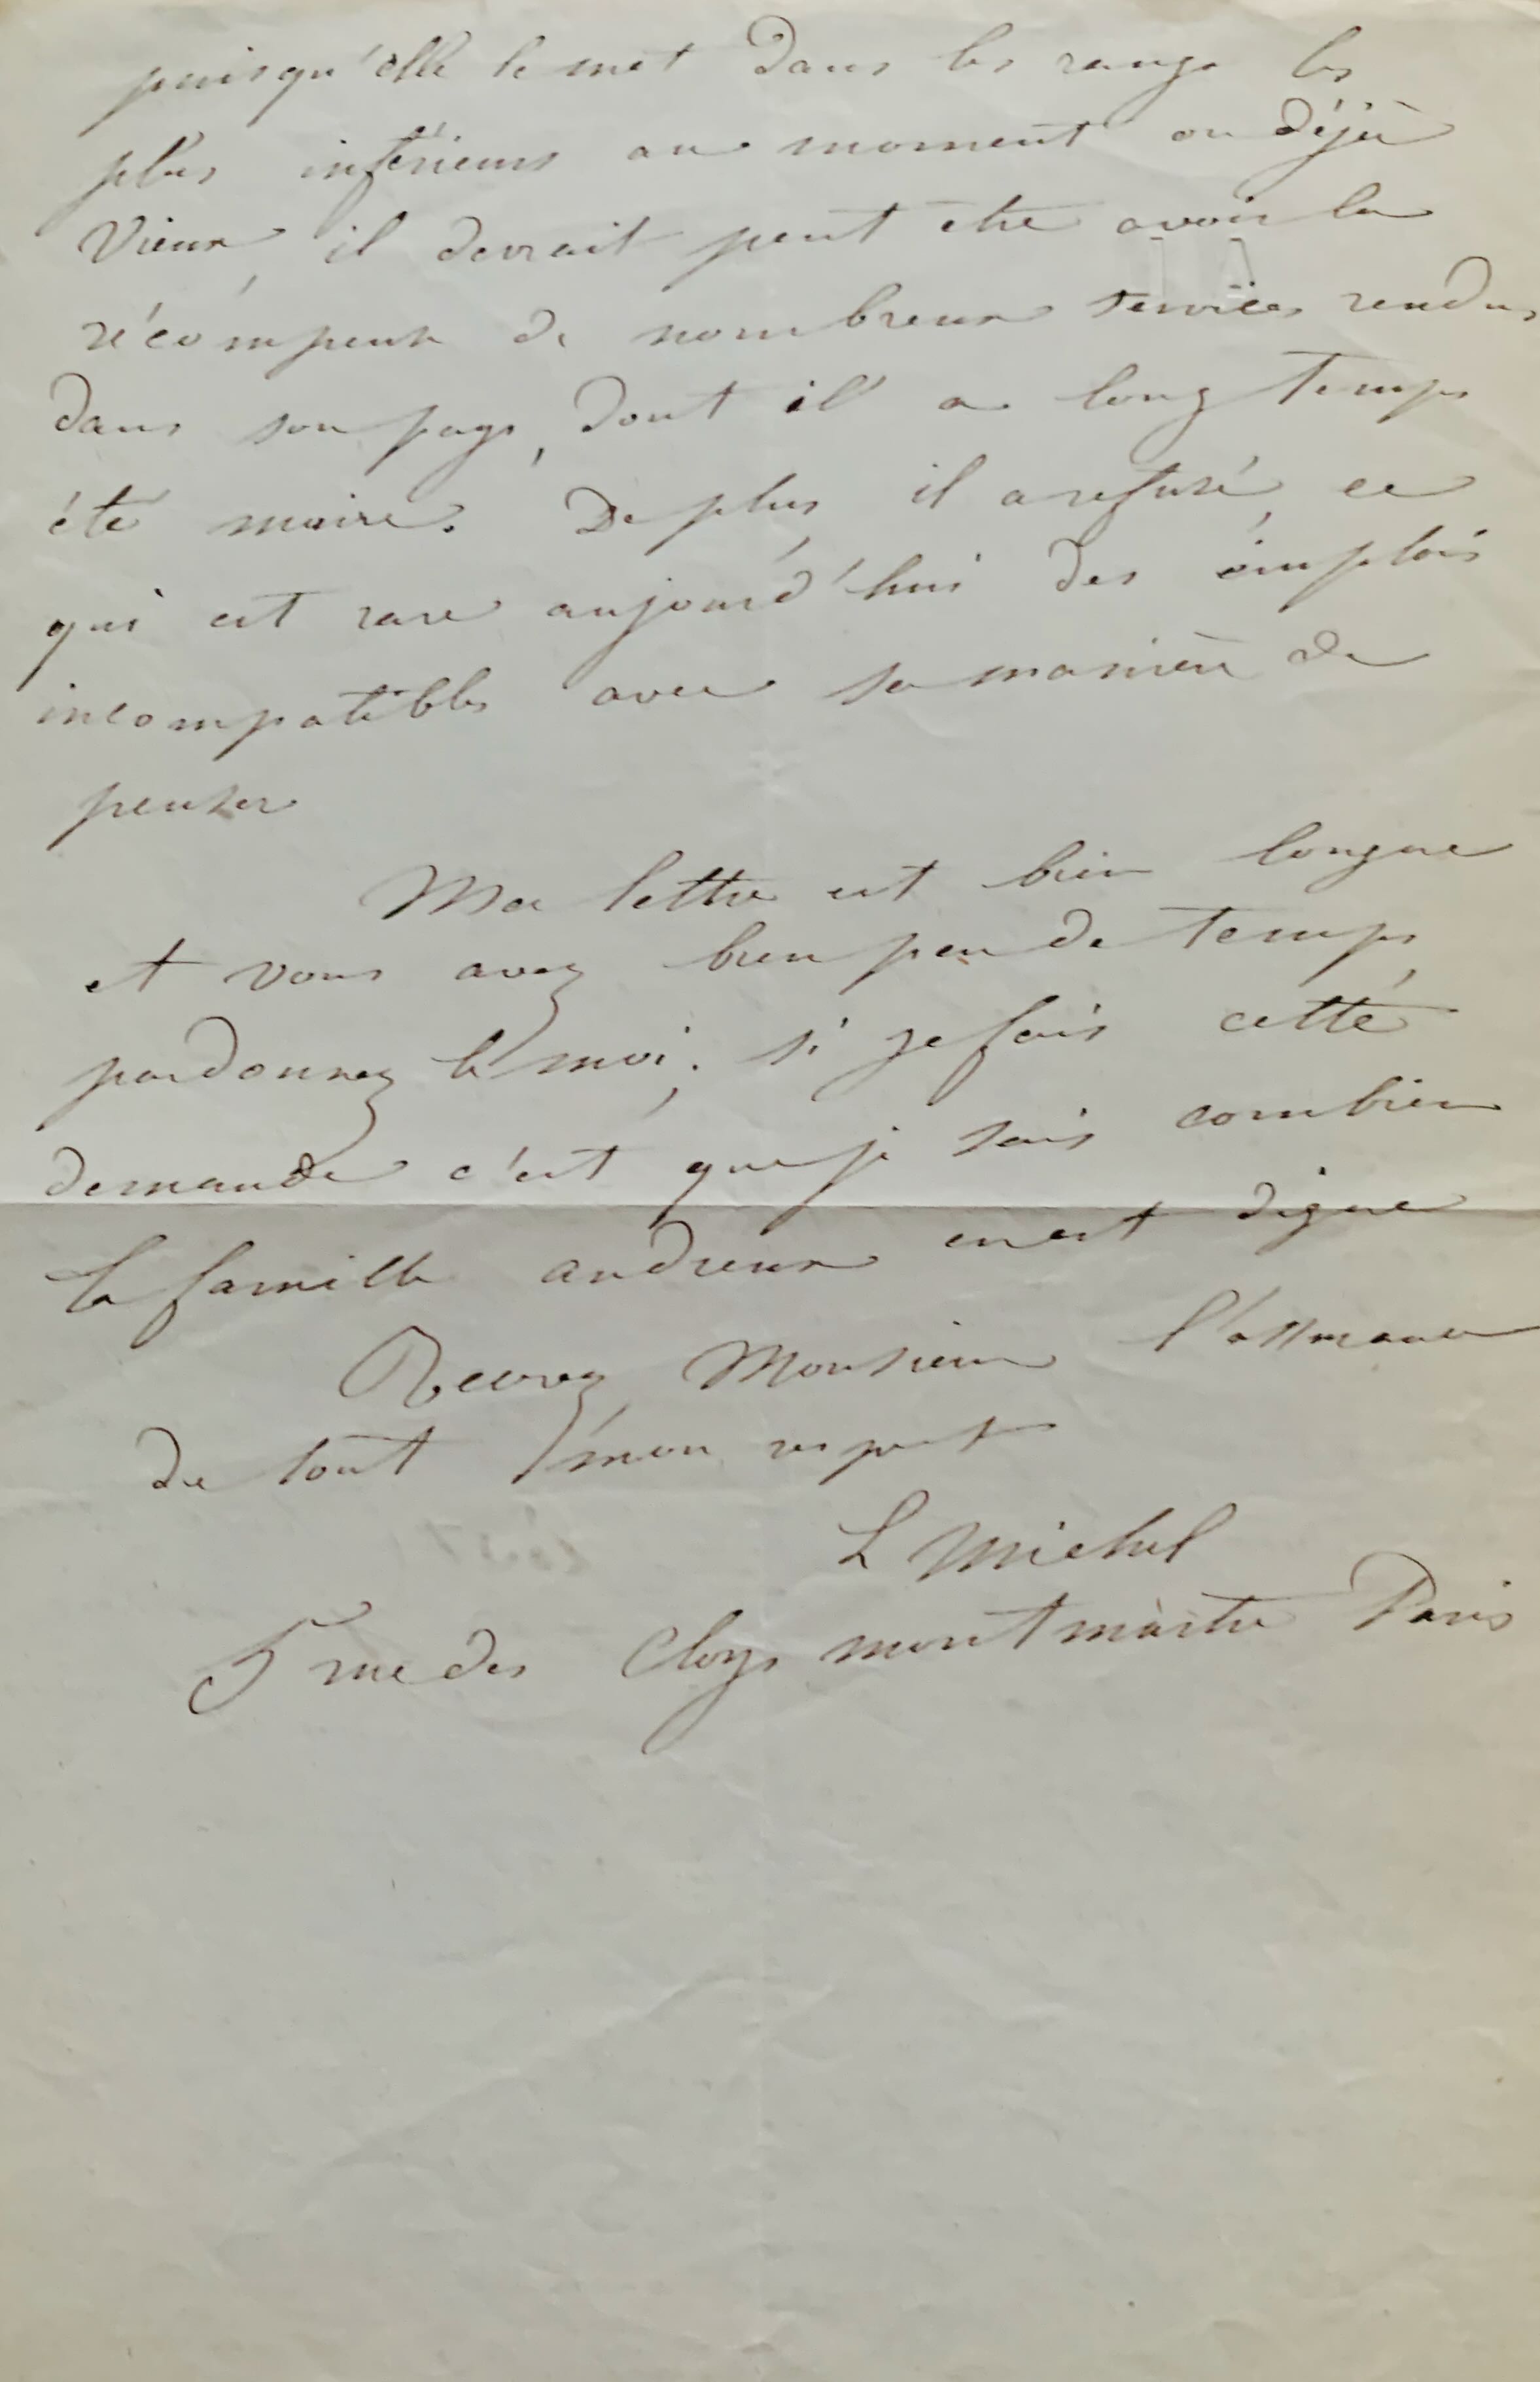 puisqu'elle le met dans les rangs les
plus inférieurs au moment ou déjà
vieux, il devrait peut être avoir la
récompense de nombreux services rendus
dans son pays, dont il a long temps
été maire. De plus, il a refusé, ce
qui est rare aujourd'hui des emplois
incompatibles avec sa manière de
penser
Ma lettre est bien longue
et vous avez bien peu de temps,
pardonnez le moi; si je fais cette
demande c'est que je sais combien
la famille andrieux en est digne
Recevez Monsieur l'assurance
de tout mon respect
L Michel
5 rue des Cloys montmartre Paris